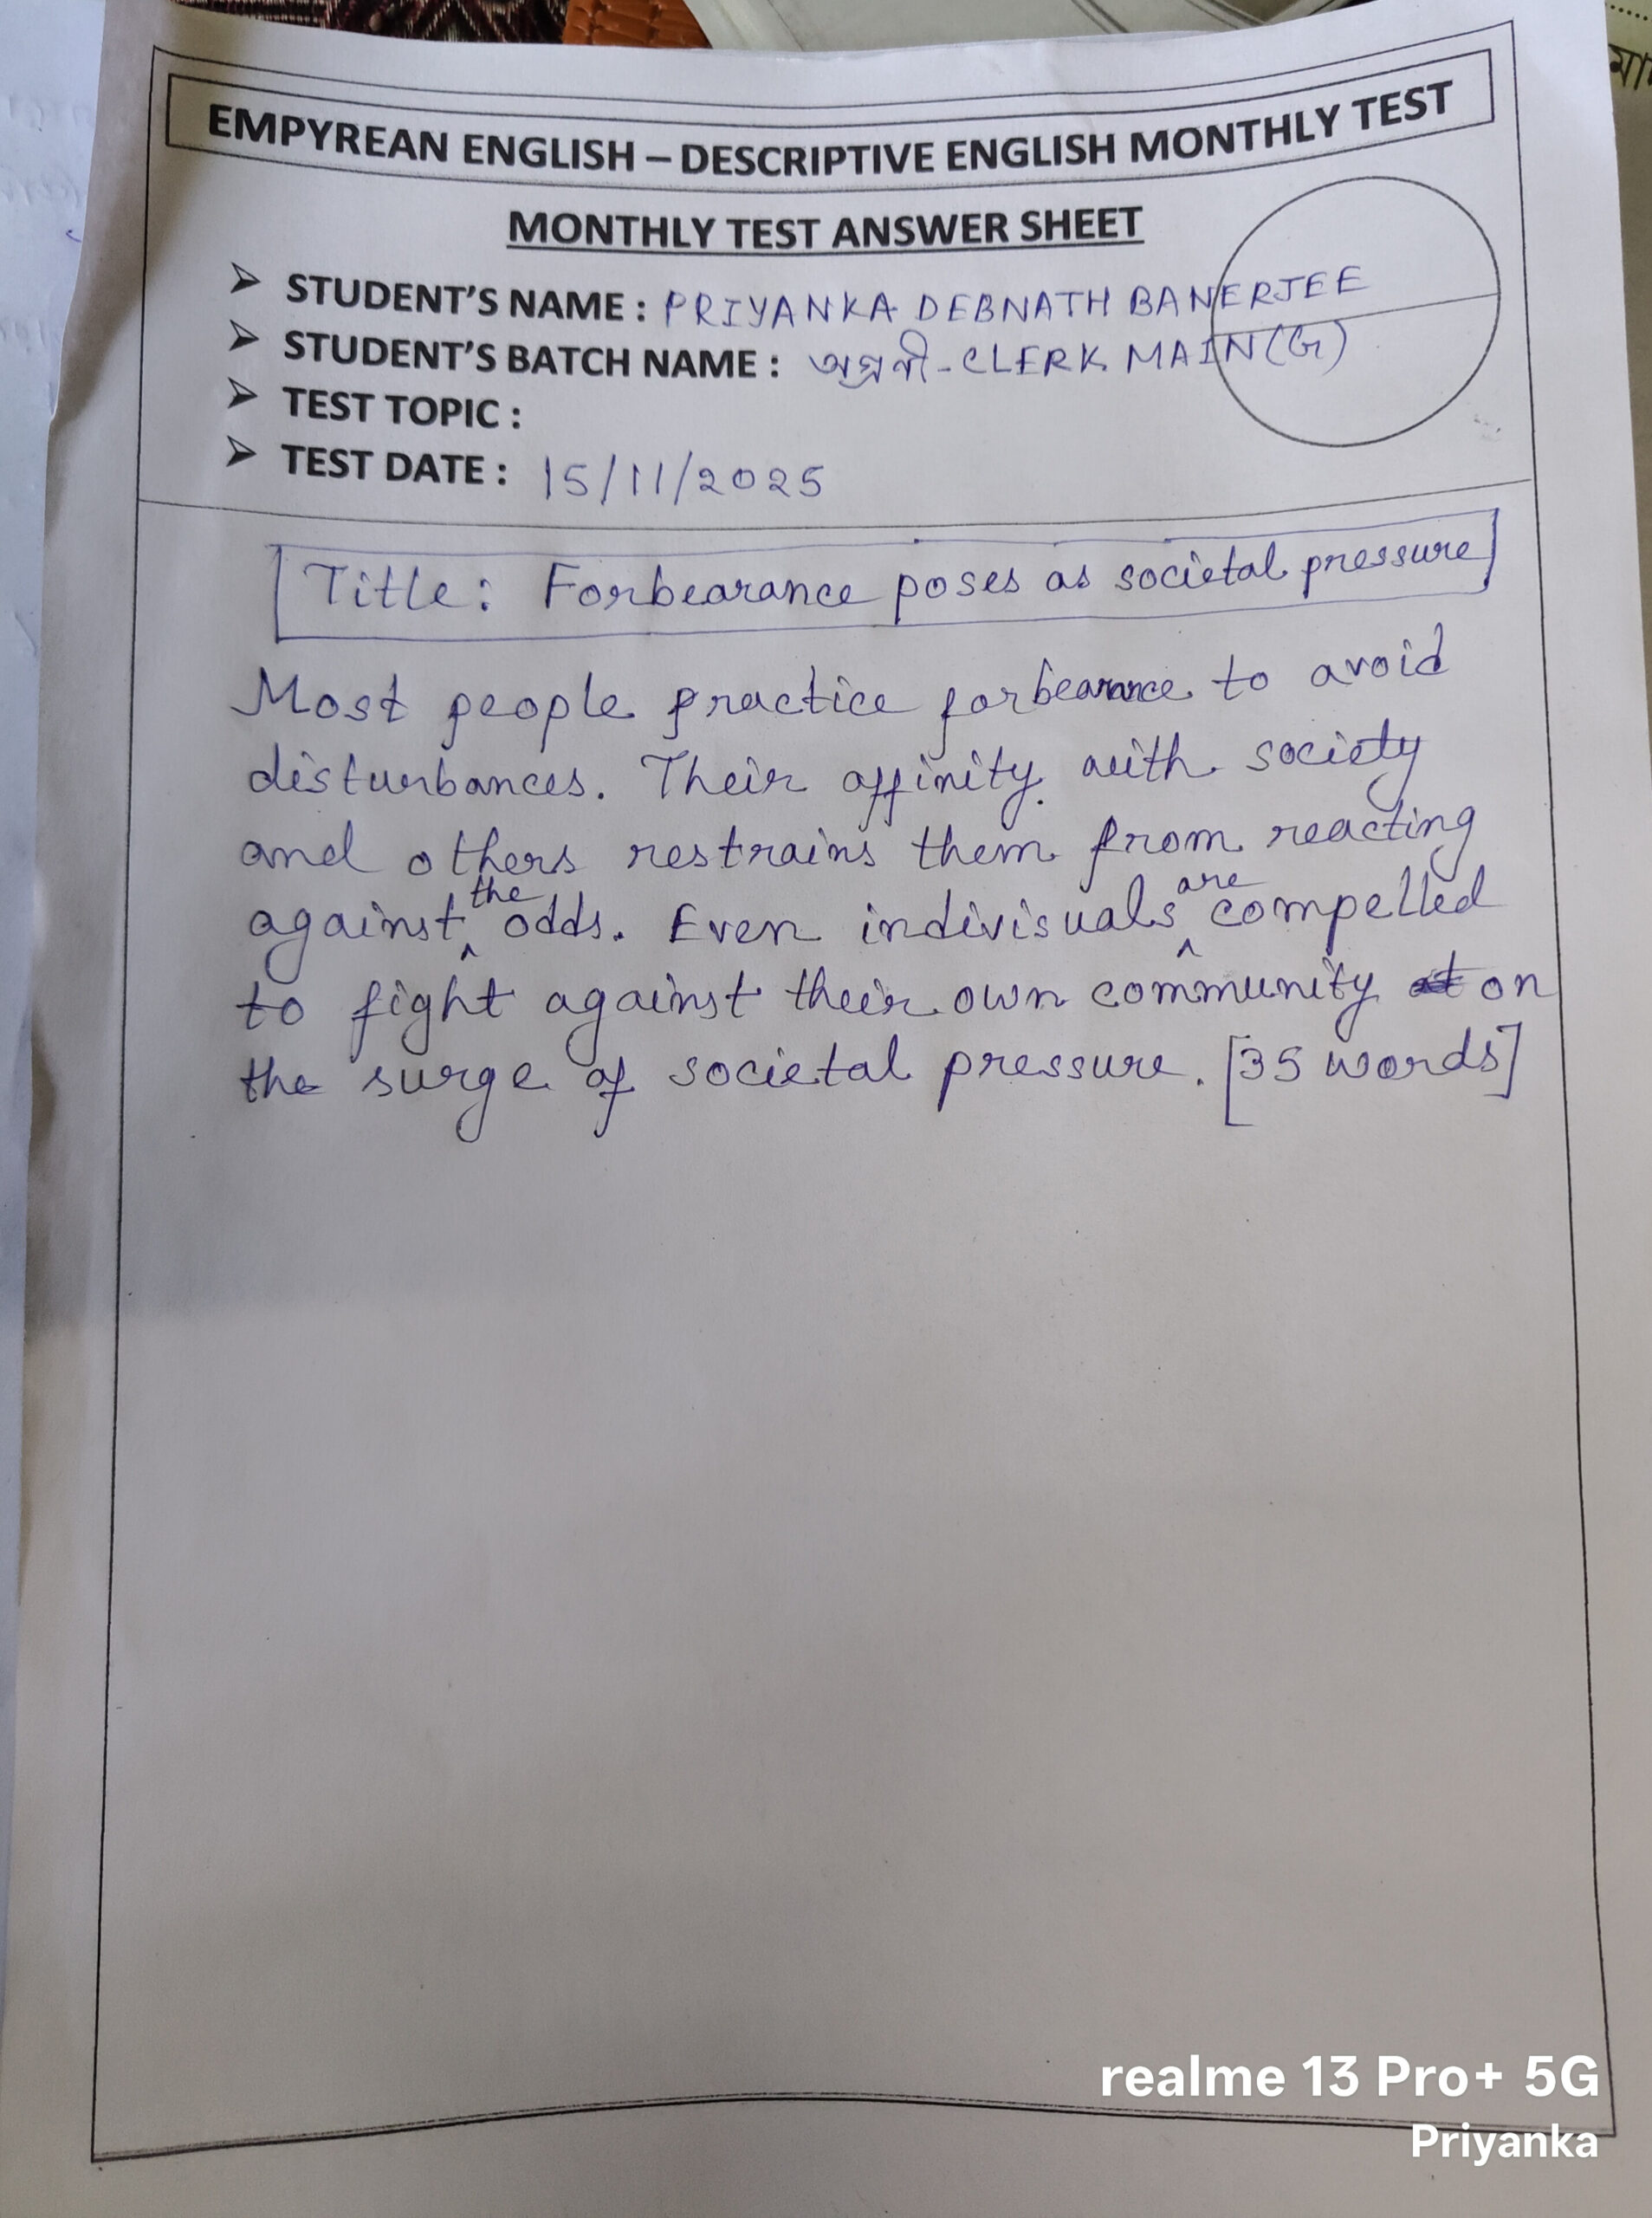 EMPYREAN ENGLISH – DESCRIPTIVE ENGLISH MONTHLY TEST
MONTHLY TEST ANSWER SHEET
➢ STUDENT'S NAME : PRIYANKA DEBNATH BANERJEE
➢ STUDENT'S BATCH NAME : অগ্রনী - CLERK MAIN(G)
➢ TEST TOPIC :
➢ TEST DATE : 15/11/2025
Title: Forbearance poses as societal pressure
Most people practice forbearance to avoid
disturbances. Their affinity with society
and others restrains them from reacting
against the odds. Even indivisuals are compelled
to fight against their own community on
the surge of societal pressure. [35 words]
realme 13 Pro+ 5G
Priyanka